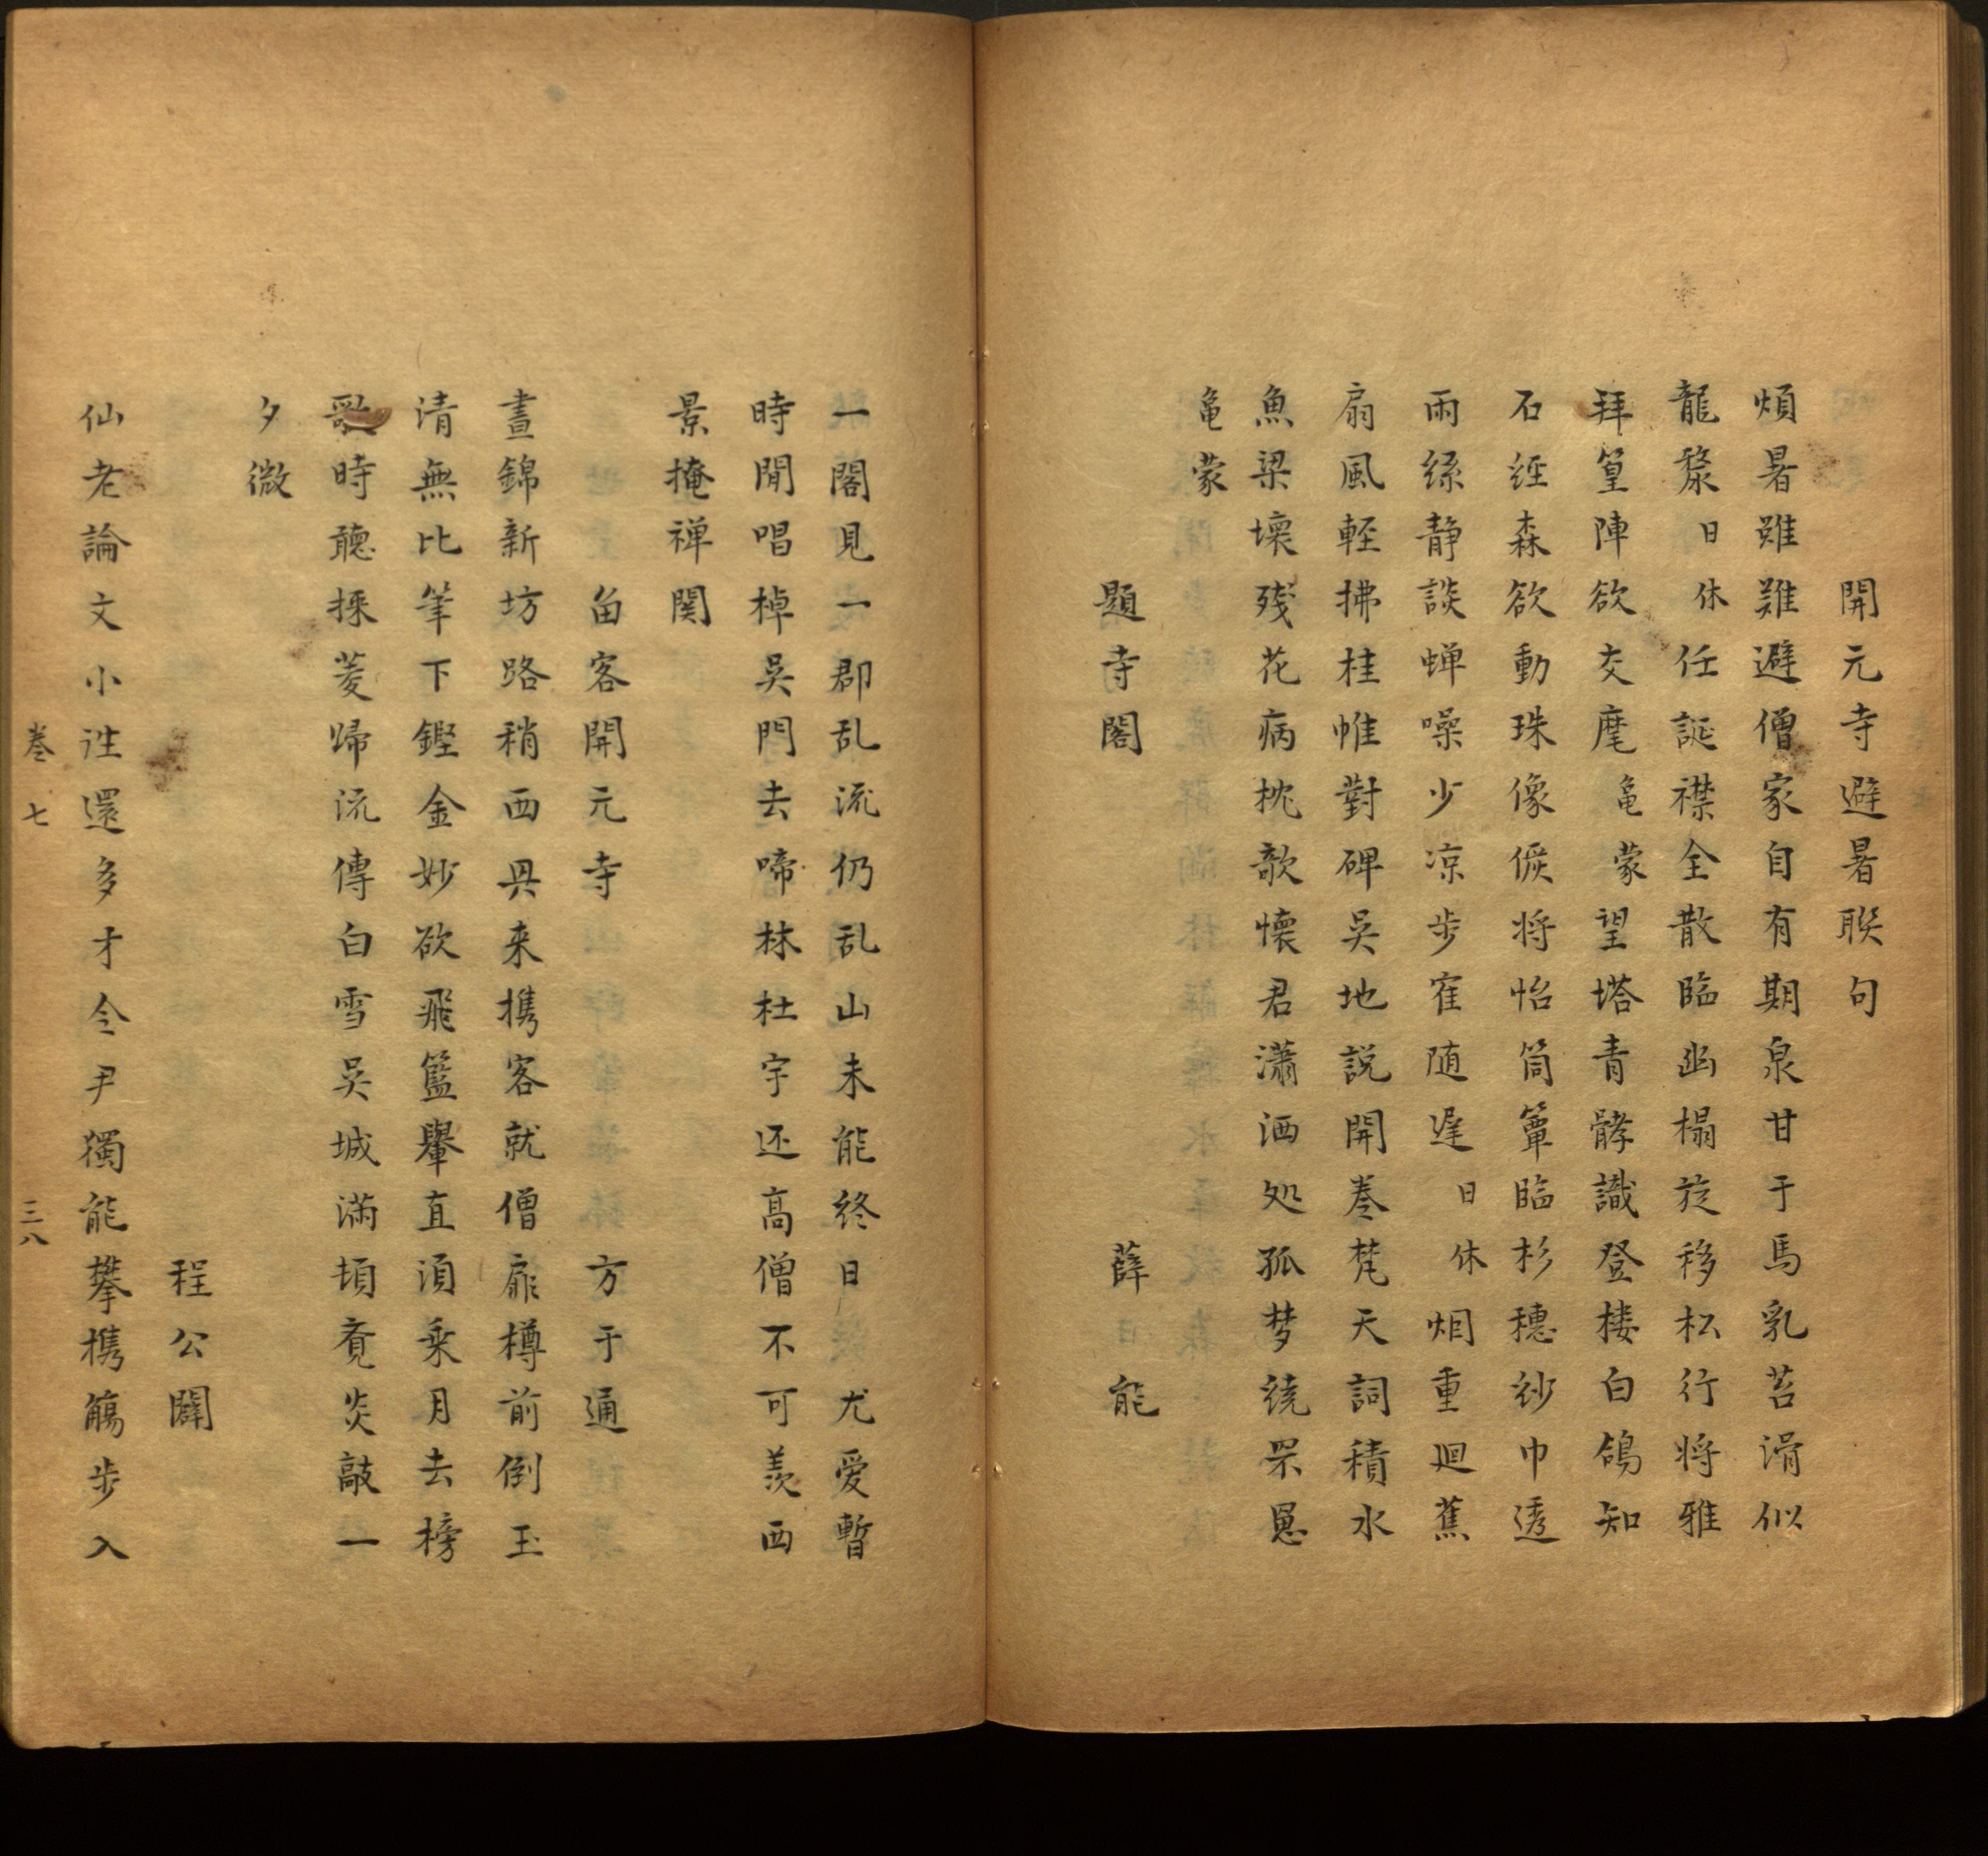 開元寺避暑聯句
煩暑雖難避僧家自有期泉甘于馬乳苔滑似
龍漦日休任誕襟全散臨幽榻旋移松行将雅
拜篁陣欲交麾亀蒙望塔青髇識登楼白鴿知
石経森欲動珠像儼将怡筒簟臨杉穗紗巾透
雨絲静談蝉噪少凉步隺随遅日休烟重迴蕉
扇風輊拂桂帷對碑吳地説開卷梵天詞積水
魚梁壞残花病枕欹懐君瀟洒処孤梦繞罘罳
亀蒙
題寺閣 薛能
一閣見一郡乱流仍乱山未能終日尤爱暫
時閒唱棹吳門去啼林杜宇还高僧不可羨西
景掩禅関
畄客開元寺 方于通
晝錦新坊路稍西興来携客就僧扉樽前倒玉
清無比笔下鏗金妙欲飛籃轝直須乗月去榜
歌時聽採菱歸流傳白雪吳城滿頃竟炎敲一
夕微
程公闢
仙老論文小诖還多才令尹獨能攀携觴步入
卷七 三八